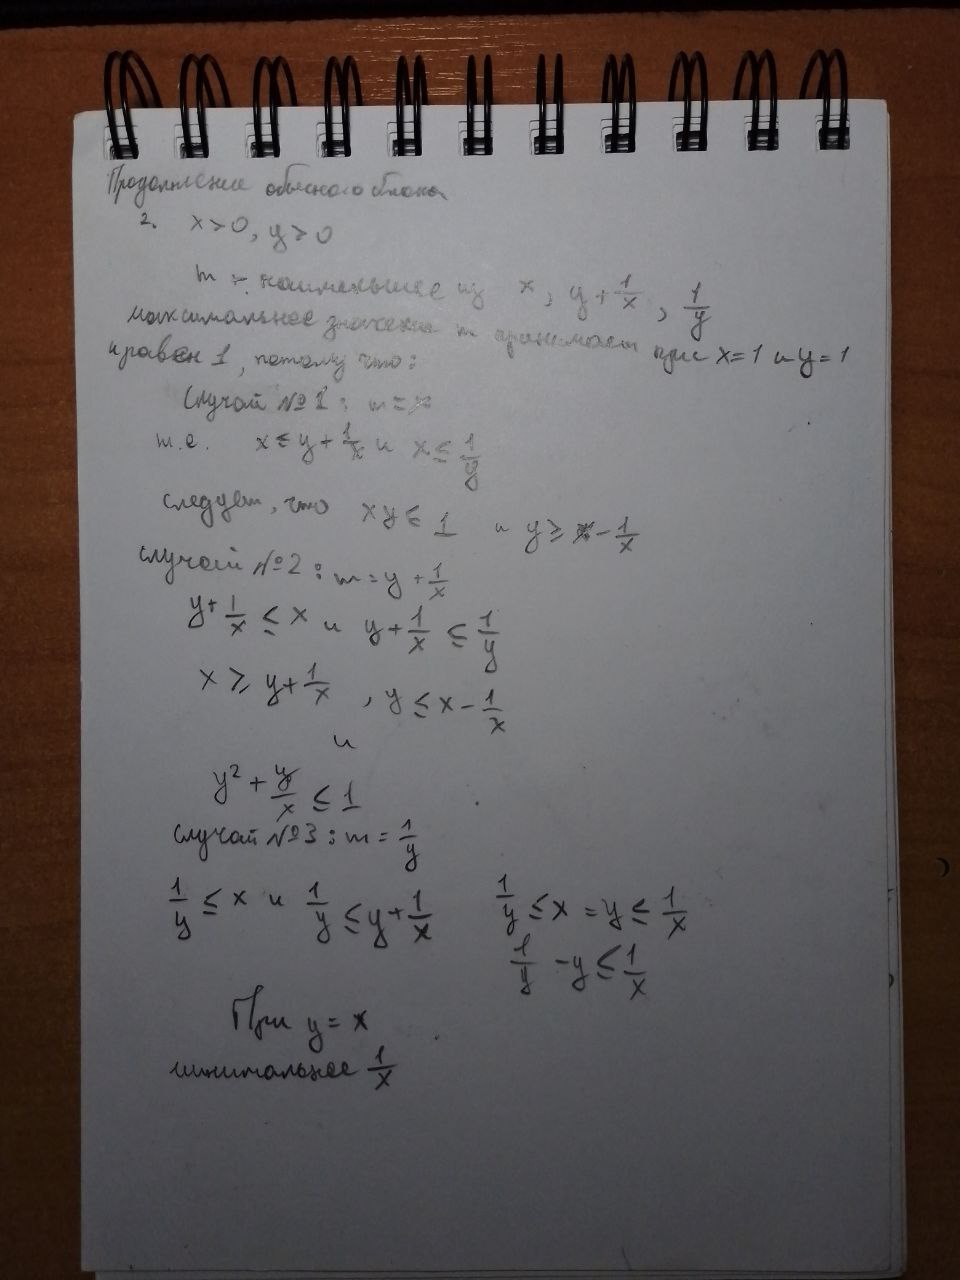 Продолжение обычного блока
2. x>0, y>0
m - наименьшее из x, y + 1/x, 1/y
максимальное значение m принимает при x=1 и y=1
и равен 1, потому что:
Случай №1: m = x
т.е. x ≤ y + 1/x и x ≤ 1/y
следует, что xy ≤ 1 и y ≥ x - 1/x
случай №2: m = y + 1/x
y + 1/x ≤ x и y + 1/x ≤ 1/y
x ≥ y + 1/x, y ≤ x - 1/x
и
y² + y/x ≤ 1
случай №3: m = 1/y
1/y ≤ x и 1/y ≤ y + 1/x
1/y ≤ x = y ≤ 1/x
1/y - y ≤ 1/x
При y = x
минимальнее 1/x